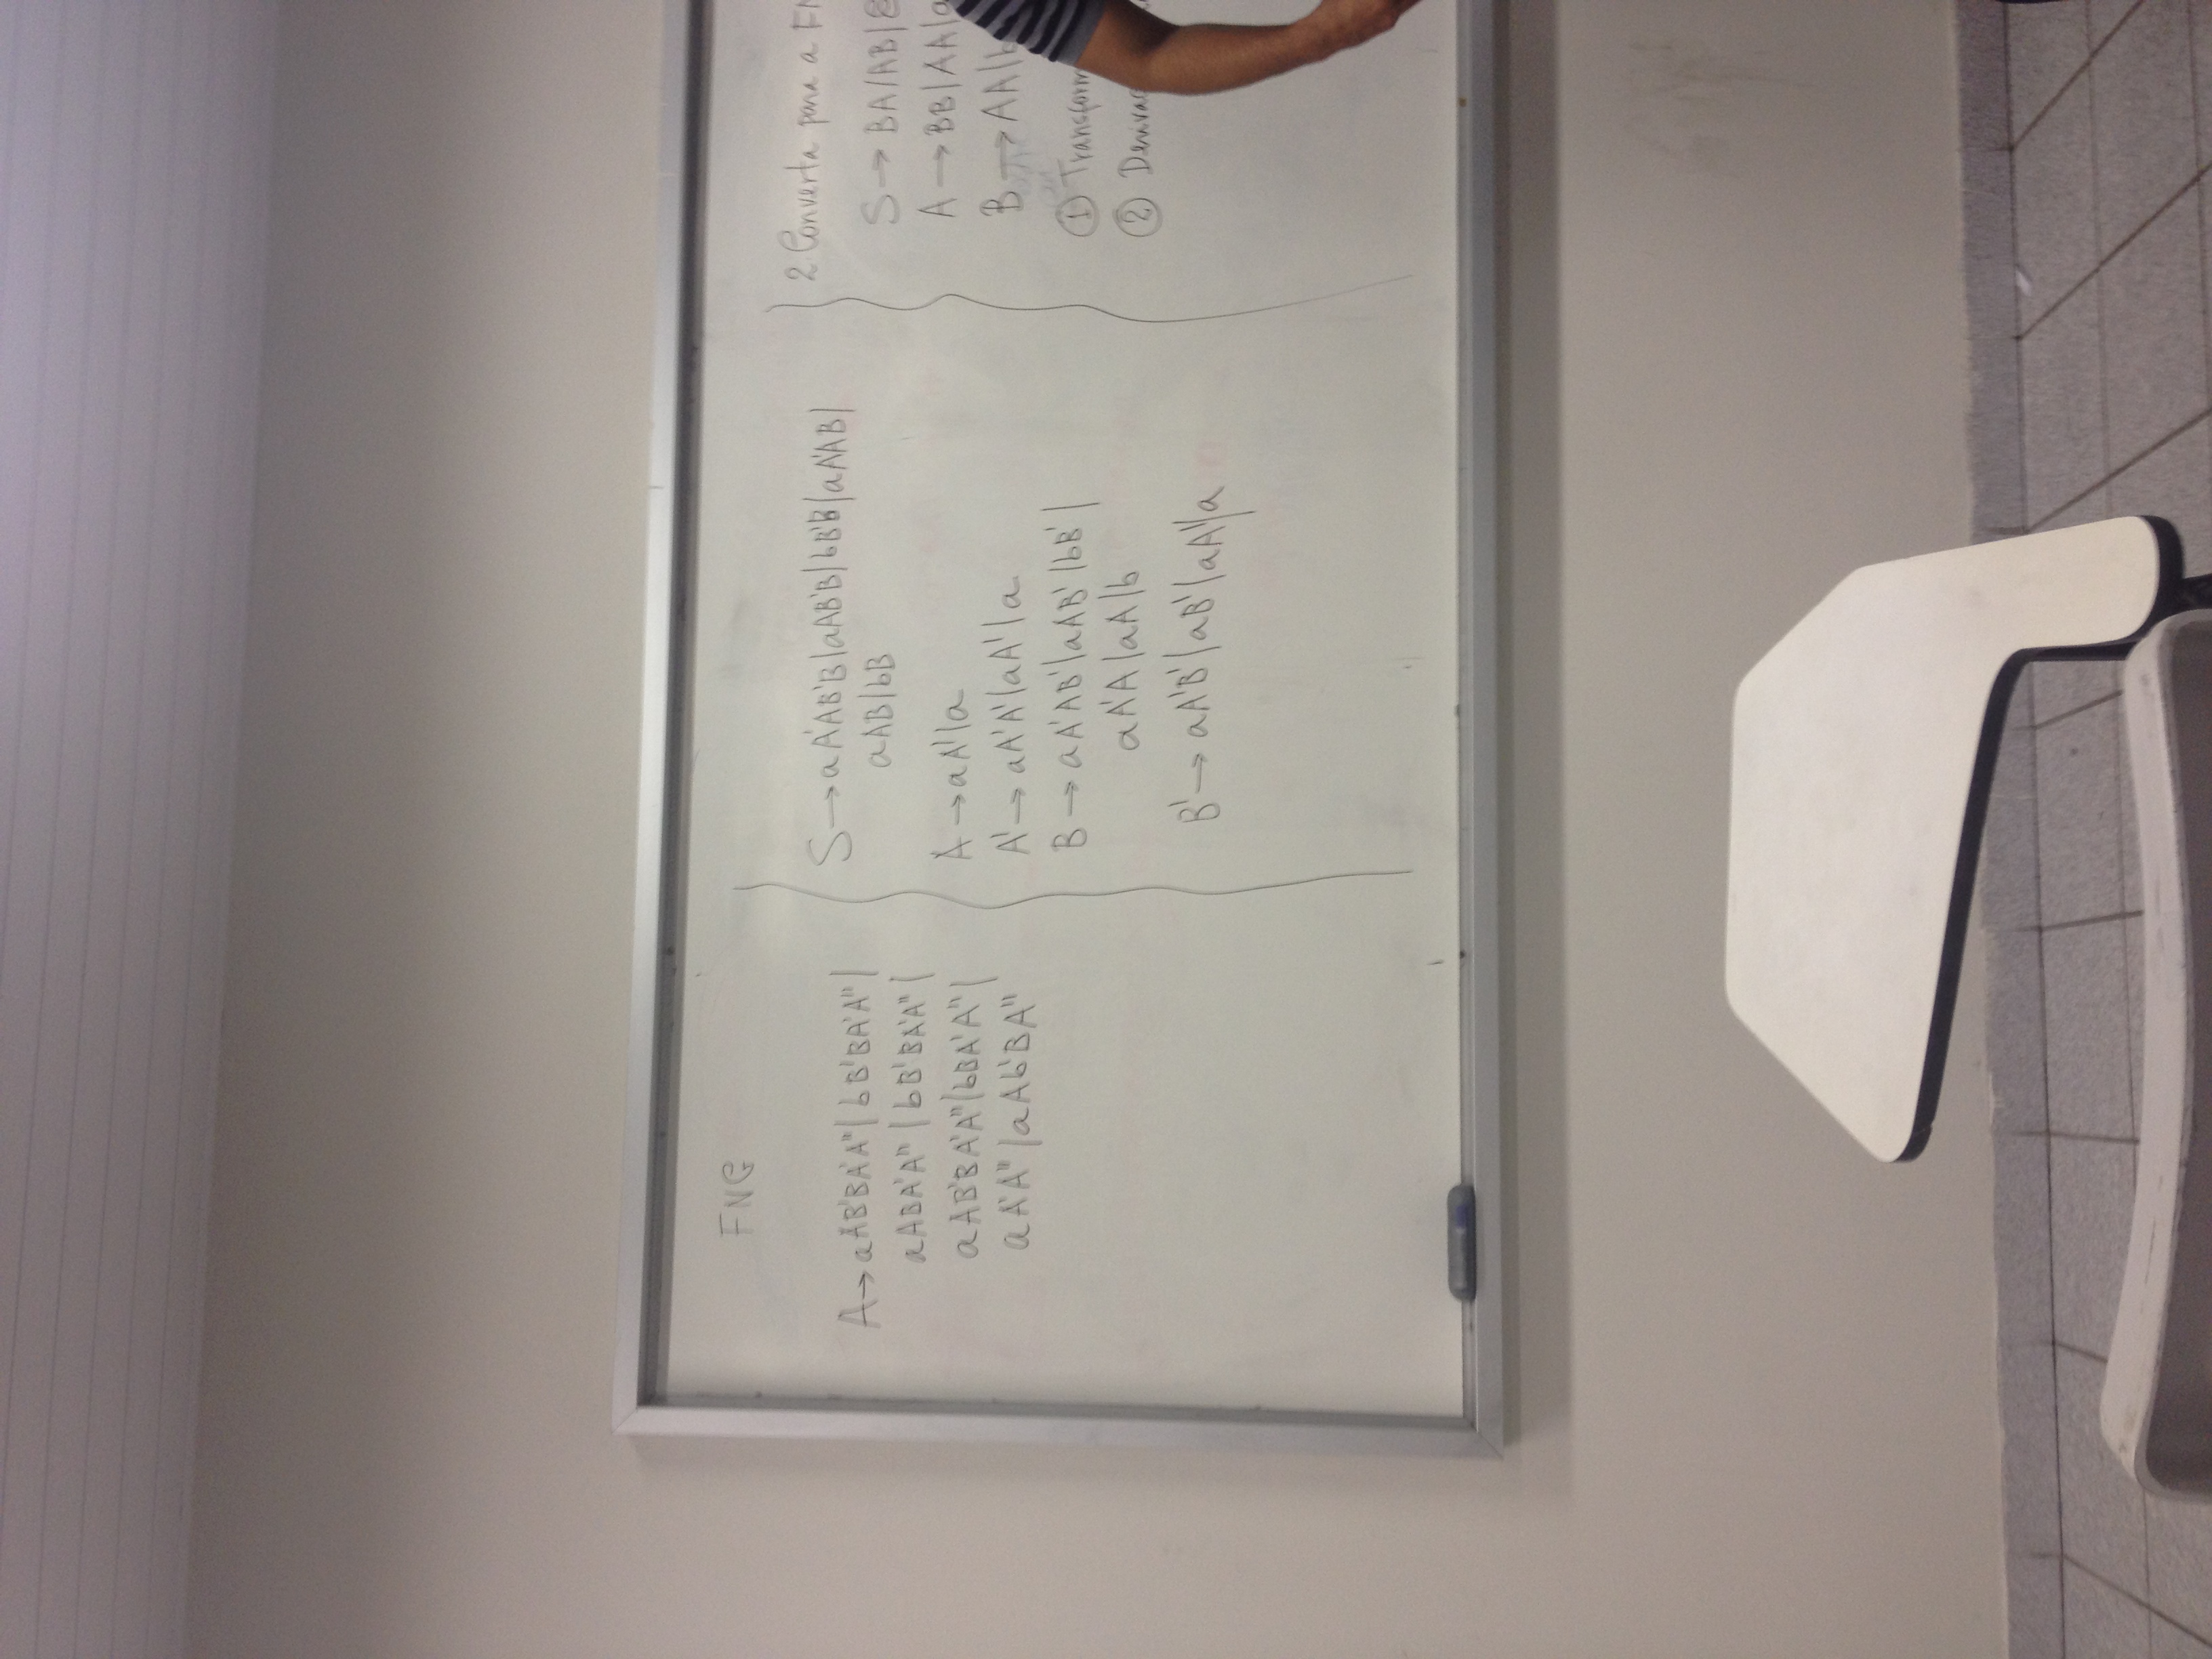 FNG
A→aAB'BA'A"|bB'BA'A"|
aABA'A"|bB'BA'A"|
aAB'BA'A"|bBA'A"|
aA'A"|aAb'BA"
S→aA'AB'B|aAB'B|bB'B|aA'AB|
aAB|bB
A→aA'|a
A'→aA'A'|aA'|a
B→aA'AB'|aAB'|bB'|
aA'A|aA|b
B'→aA'B'|aB'|aA'|a
2 Converta para a FN
S→BA|AB|ε
A→BB|AA|a
B→AA|b
① Transform
② Deriva